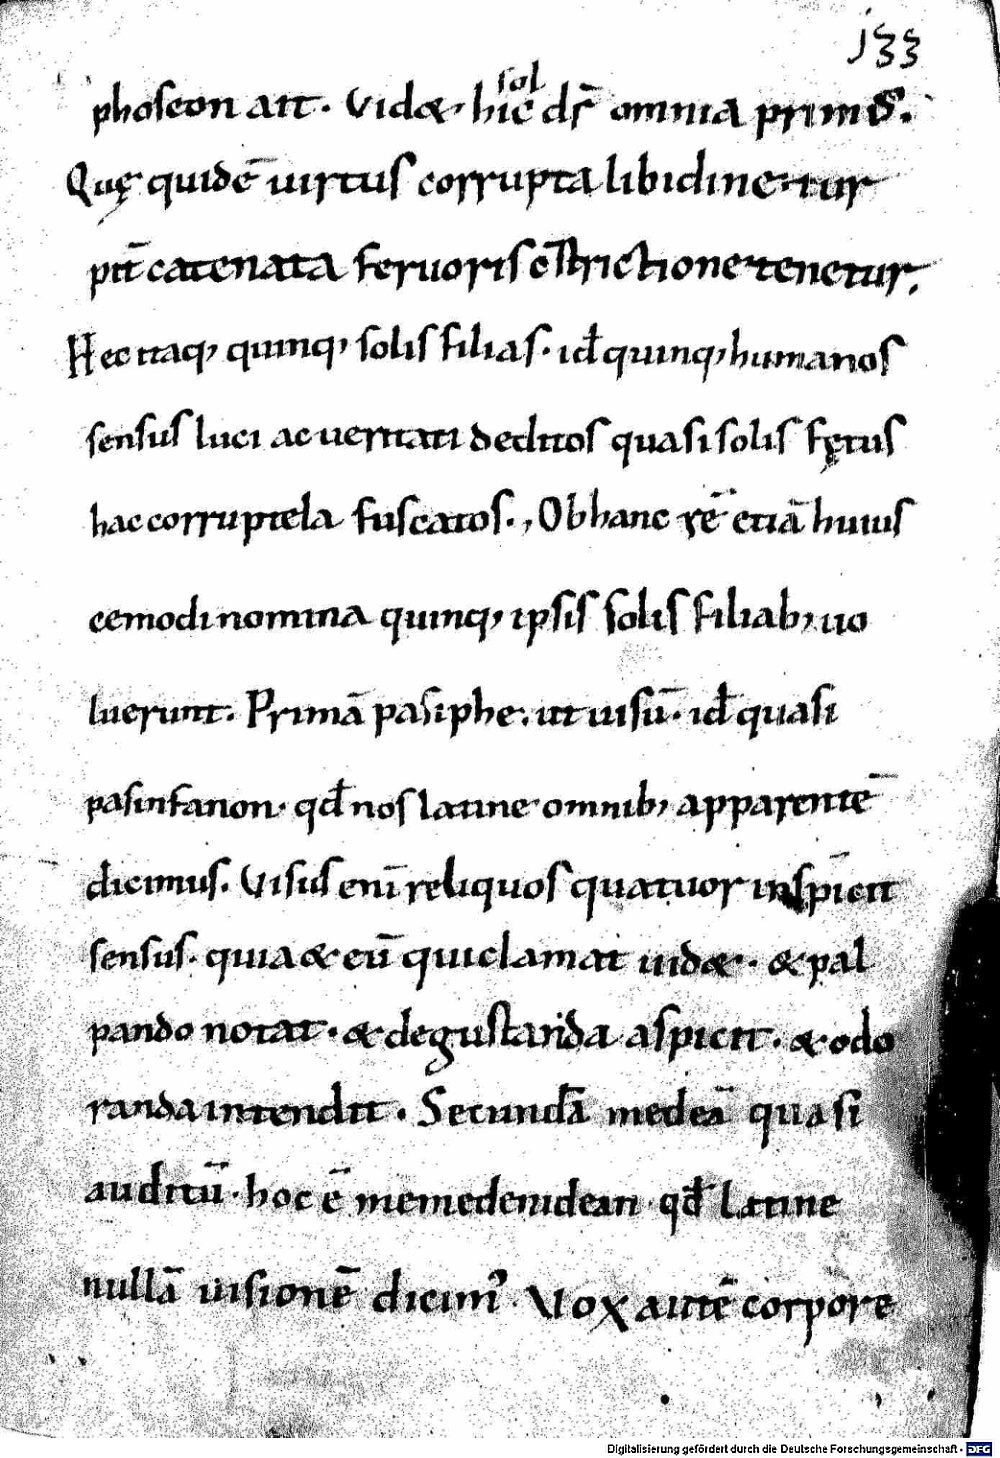 j33
sol
phoseon ait. Vid&, hic dſ̄ omnia primꝰ.
Quę quidē uirtus corrupta libidine tur
pit̄ catenata feruoris c̄strictione tenetur.
Hec itaq, quinq, solis filias. id̄ quinq, humanos
sensus luci ac ueritati deditos quasi solis fętus
hac corruptela fuscatos., Ob hanc rē etiā huius
cemodi nomina quinq, ipsis solis filiab, uo
luerunt. Primā pasiphe. ut uisū. id̄ quasi
pasinfanon. qd̄ nos latine omnib, apparentē
dicimus. Visus enī reliquos quatuor inspicit
sensus. quia & eū qui clamat uid&. & pal
pando notat. & degustanda aspicit. & odo
randa intendit. Secundā medeā quasi
auditū. hoc ē memedenidean qd̄ latine
nullā uisionē dicimꝰ. Vox autē corpore
Digitalisierung gefördert durch die Deutsche Forschungsgemeinschaft - DFG